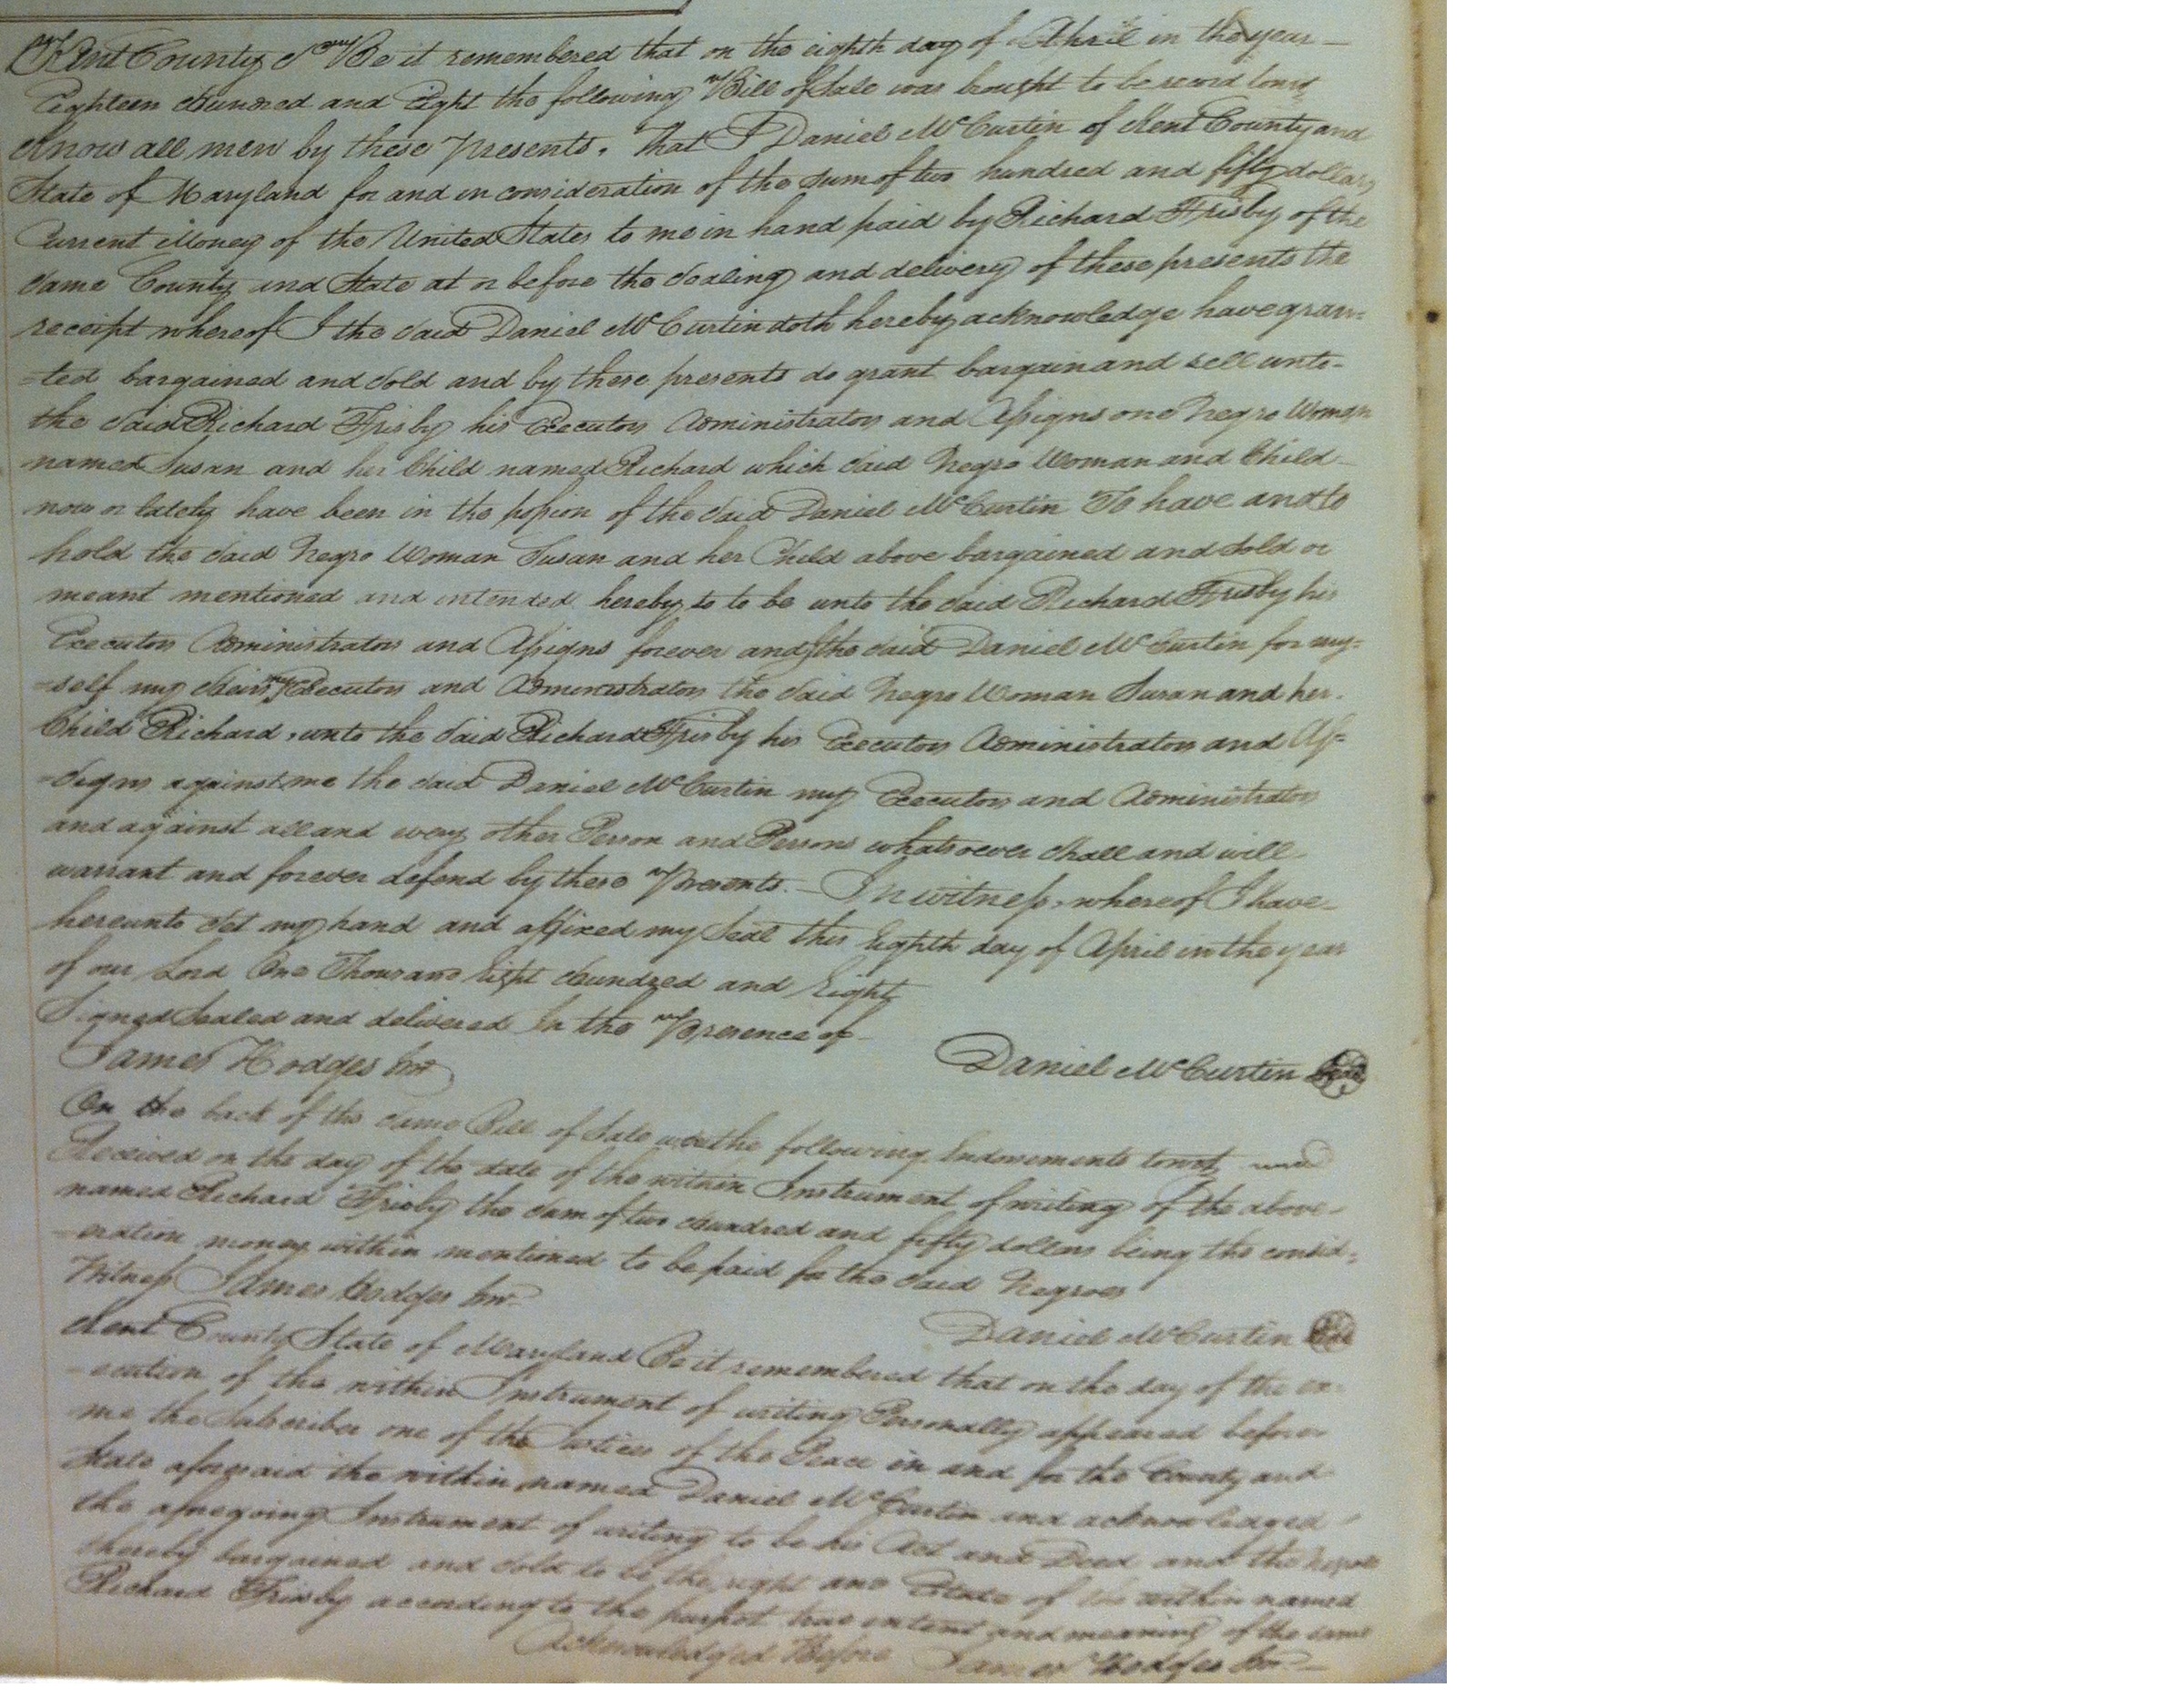 Kent County Sct Be it remembered that on the eighth day of April in the year
Eighteen Hundred and Eight the following Bill of Sale was brought to be record towit,
Know all men by these Presents, That I Daniel McCurtin of Kent County and
State of Maryland for and in consideration of the sum of two hundred and fifty dollars
Current Money of the United States to me in hand paid by Richard Frisby of the
same County and State at or before the sealing and delivery of these presents the
receipt whereof I the said Daniel McCurtin doth hereby acknowledge have gran=
=ted bargained and sold and by these presents do grant bargain and sell unto
the said Richard Frisby his Executors Administrators and Assigns one Negro Woman
named Susan and her Child named Richard which said Negro Woman and Child
now or lately have been in the possion of the said Daniel McCurtin To have and to
hold the said Negro Woman Susan and her Child above bargained and sold or
meant mentioned and intended hereby to to be unto the said Richard Frisby his
Executors Administrators and Assigns forever and I the said Daniel McCurtin for my=
=self my Heirs my Executors and Administrators the said Negro Woman Susan and her
Child Richard, unto the said Richard Frisby his Executors Administrators and As=
=signs against me the said Daniel McCurtin my Executors and Administrators
and against all and every other Person and Persons whatsoever shall and will
warrant and forever defend by these Presents. In witness, whereof I have
hereunto set my hand and affixed my Seal this Eighth day of April in the year
of our Lord One Thousand Eight Hundred and Eight
Signed Sealed and delivered In the Presence of
James Hodges Daniel McCurtin Seal
On the back of the same Bill of Sale was the following Endorsements towit,
Received on the day of the date of the within Instrument of writing of the above
named Richard Frisby the sum of two Hundred and fifty dollars being the consid=
=eration money within mentioned to be paid for the said Negroes
Witness James Hodges Daniel McCurtin Seal
Kent County State of Maryland Be it remembered that on the day of the ex=
=ecution of the within Instrument of writing Personally appeared before
me the Subscriber one of the Justices of the Peace in and for the County and
State aforesaid the within named Daniel McCurtin and acknowledged
the aforegoing Instrument of writing to be his Act and Deed and the Negroes
thereby bargained and sold to be the right and Estate of the within named
Richard Frisby according to the purport true intent and meaning of the same
Acknowledged Before James Hodges